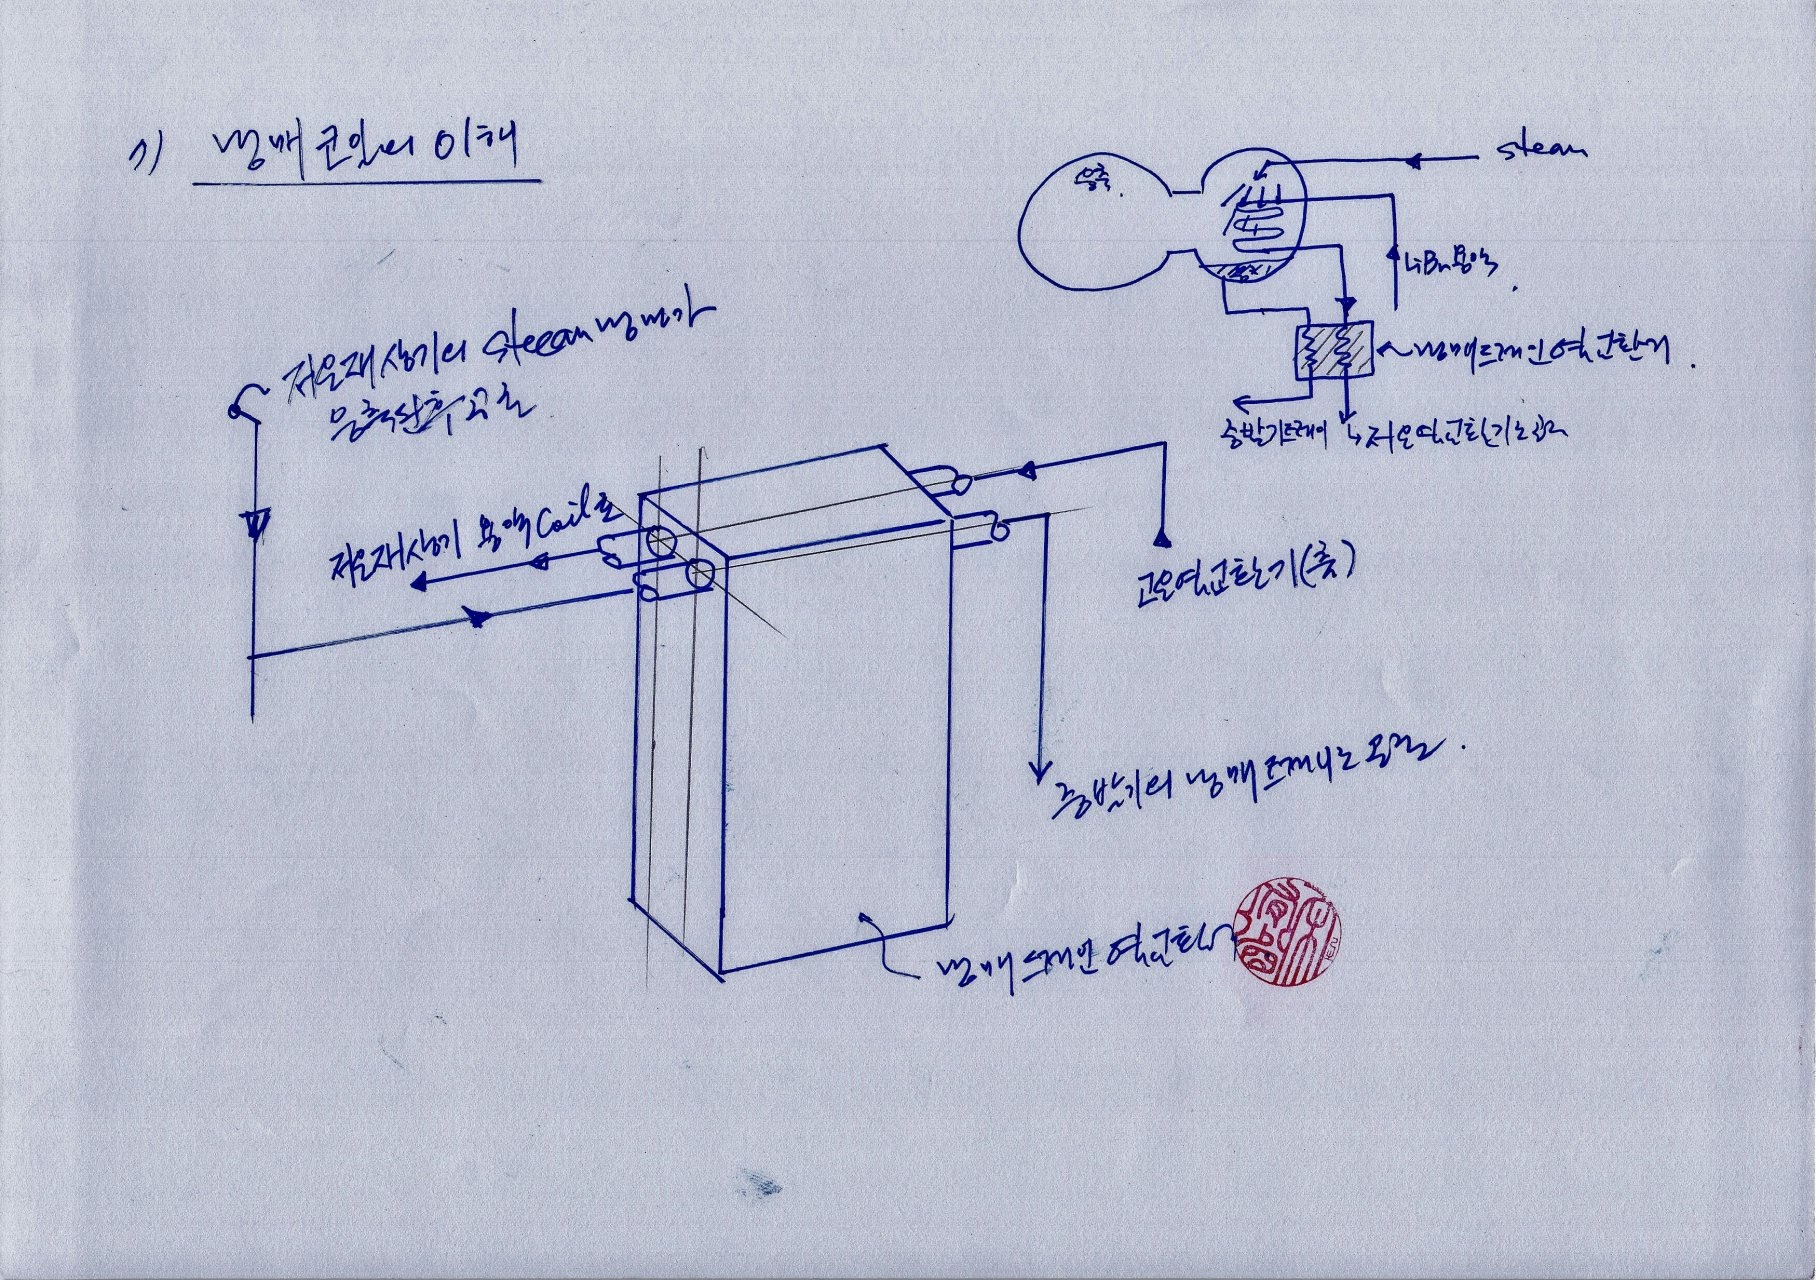 7) 냉매 코일의 이해
steam
응축.
LiBr용액
냉매드레인 열교환기.
증발기트레이
↳저온열교환기로
저온재생기의 steam냉매가
응축된후
저온재생기 용액 Coil로
고온열교환기(중)
증발기의 냉매 트레이로 공급.
냉매 드레인 열교환기